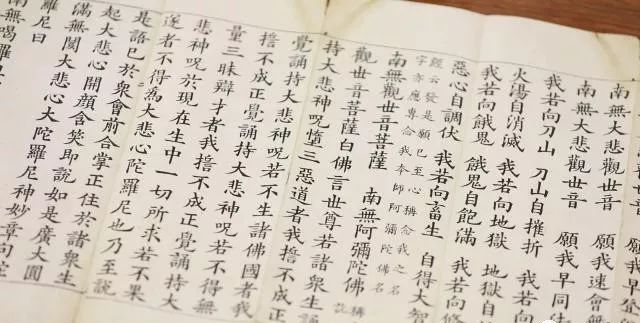 悲觀音 願我早
南無大悲觀音 願我速會無
南無大悲觀音 願我早同法
我若向刀山 刀山自摧折 我若向
火湯自消滅 我若向地獄 地獄自
我若向餓鬼 餓鬼自飽滿 我若向修
惡心自調伏 我若向畜生 自得大智
經云發是願已至心稱念我之名
字亦應專念我本師阿彌陀佛名
南無觀世音菩薩 南無阿彌陀佛 稱訖
觀世音菩薩白佛言世尊若諸眾生
持大悲神呪墮三惡道者我擔不成正
覺誦持大悲神呪若不生諸佛國者我
擔不成正覺誦持大悲神呪若不得無
量三昧辯才者我擔不成正覺誦持大
悲神呪於現在生中一切所求若不果
遂者不得為大悲心陀羅尼也乃至說
是語已於眾會前合掌正住於諸眾生
起大悲心開顏含笑即說如是廣大圓
滿無閡大悲心大陀羅尼神妙章句陀
羅尼曰
無喝囉